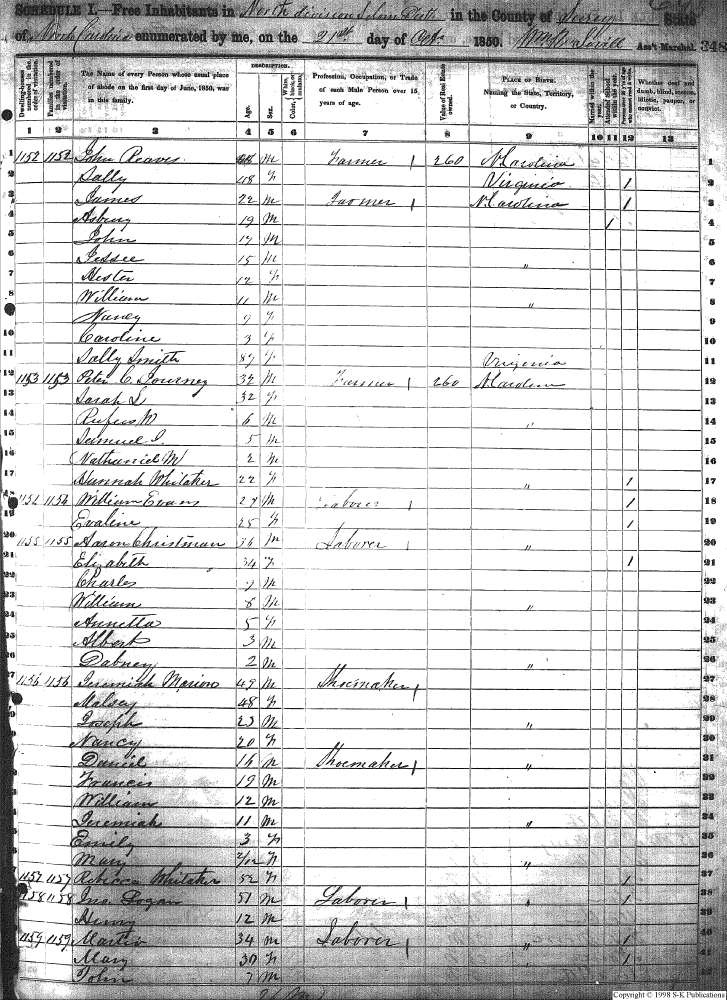 SCHEDULE I.—Free Inhabitants in North division Salem Distr in the County of Surry State
of North Carolina enumerated by me, on the 21st day of Octr 1850. Ass't Marshal. 348
Dwelling-houses numbered in the order of visitation.
Families numbered in the order of visitation.
The Name of every Person whose usual place of abode on the first day of June, 1850, was in this family.
DESCRIPTION.
Age.
Sex.
Color, White, black, or mulatto.
Profession, Occupation, or Trade of each Male Person over 15 years of age.
Value of Real Estate owned.
PLACE OF BIRTH. Naming the State, Territory, or Country.
Married within the year.
Whether deaf and dumb, blind, insane, idiotic, pauper, or convict.
1 2 3 4 5 6 7 8 9 10 11 12 13
1 1152 1152 John Reaves M Farmer 1 260 N Carolina 1
2 Sally 48 F Virginia 1 2
3 James 22 M Farmer 1 N. Carolina 1 3
4 Asbury 19 M 1 4
5 John 17 M 5
6 Jessee 15 M " 6
7 Hester 12 F 7
8 William 11 M " 8
9 Nancy 9 F 9
10 Caroline 3 F 10
11 Sally Smith 87 F Virginia 11
12 1153 1153 Peter C. Journey 34 M Farmer 1 260 N Carolina 12
13 Sarah L 32 F 13
14 Rufus W 6 M " 14
15 Samuel I. 5 M 15
16 Nathaniel M 2 M 16
17 Hannah Whitaker 22 F " 1 17
18 1154 1154 William Evans 27 M Laborer 1 1 18
19 Evaline 25 F 1 19
20 1155 1155 Aaron Christman 36 M Laborer 1 " 20
21 Elizabeth 34 F 1 21
22 Charles 7 M 22
23 William 6 M " 23
24 Annetta 5 F 24
25 Albert 3 M 25
26 Dabney 2 M " 26
27 1156 1156 Jeremiah Marion 49 M Shoemaker 1 27
28 Malsey 48 F 28
29 Joseph 23 M " 29
30 Nancy 20 F 30
31 Daniel 16 M Shoemaker 1 " 31
32 Francis 19 M 32
33 William 12 M 33
34 Jeremiah 11 M " 34
35 Emily 3 F 35
36 Mary 2/12 F " 36
37 1157 1157 Rebecca Whitaker 52 F 1 37
38 1158 1158 Jno. Logan 51 M Laborer 1 " 1 38
39 Henry 12 M 39
40 1159 1159 Martin 34 M Laborer 1 " 1 40
41 Mary 30 F 1 41
John 7 M
Copyright © 1998 S-K Publications